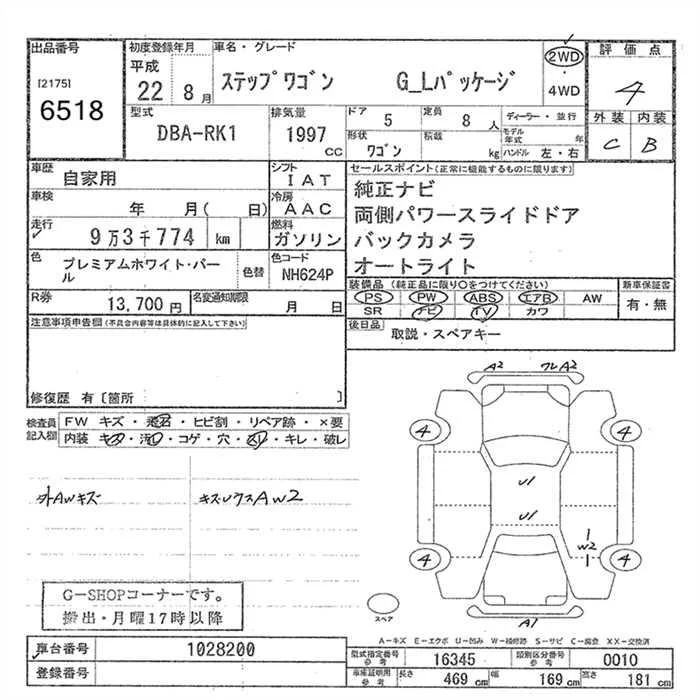 出品番号
[2175]
6518
初度登録年月
平成
22 8 月
車名・グレード
ステップワゴン G_Lパッケージ
2WD
・
4WD
評価点
4
外装 内装
C B
型式
DBA-RK1
排気量
1997 CC
ドア
5
定員
8 人
形状
ワゴン
積載
kg
ディーラー・並行
モデル年式 年
ハンドル 左・右
車歴
自家用
シフト
IAT
車検
年 月( 日)
冷房
AAC
走行
9万3千774 km
燃料
ガソリン
色
プレミアムホワイト・パール
色替
色コード
NH624P
R券
13,700 円
名変通知期限
月 日
セールスポイント(正常に機能するものに限ります)
純正ナビ
両側パワースライドドア
バックカメラ
オートライト
装備品 (純正品に限り○をつけてください)
PS PW ABS エアB AW
SR ナビ TV カワ
新車保証書
有・無
後日品
取説・スペアキー
注意事項申告欄 (不具合内容等は具体的に記入して下さい)
修復歴 有〔箇所 〕
検査員
記入欄
FW キズ・飛石・ヒビ割・リペア跡・×要
内装 キズ・汚レ・コゲ・穴・スレ・キレ・破レ
外AWキズ
AW2
A2 A2
4 4
U1
U1
W2
4 4
A1
スペア
G-SHOPコーナーです。
搬出・月曜17時以降
A-キズ E-エクボ U-凹み W-補修跡 S-サビ C-腐食 XX-交換済
車台番号
1028200
登録番号
型式指定番号
参考
16345
類別区分番号
参考
0010
車庫証明用
参考
長さ
469 cm
幅
169 cm
高さ
181 cm